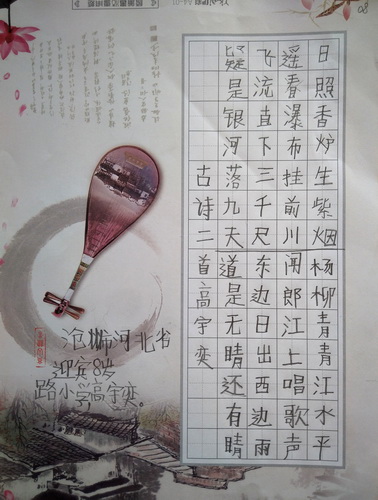 日照香炉生紫烟杨柳青青江水平
遥春瀑布挂前川闻郎江上唱歌声
飞流直下三千尺东边日出西边雨
疑是银河落九夫道是无晴还有晴
古诗二首高宇奕
沧州市河北省
迎宾8岁
路小学高宇奕。